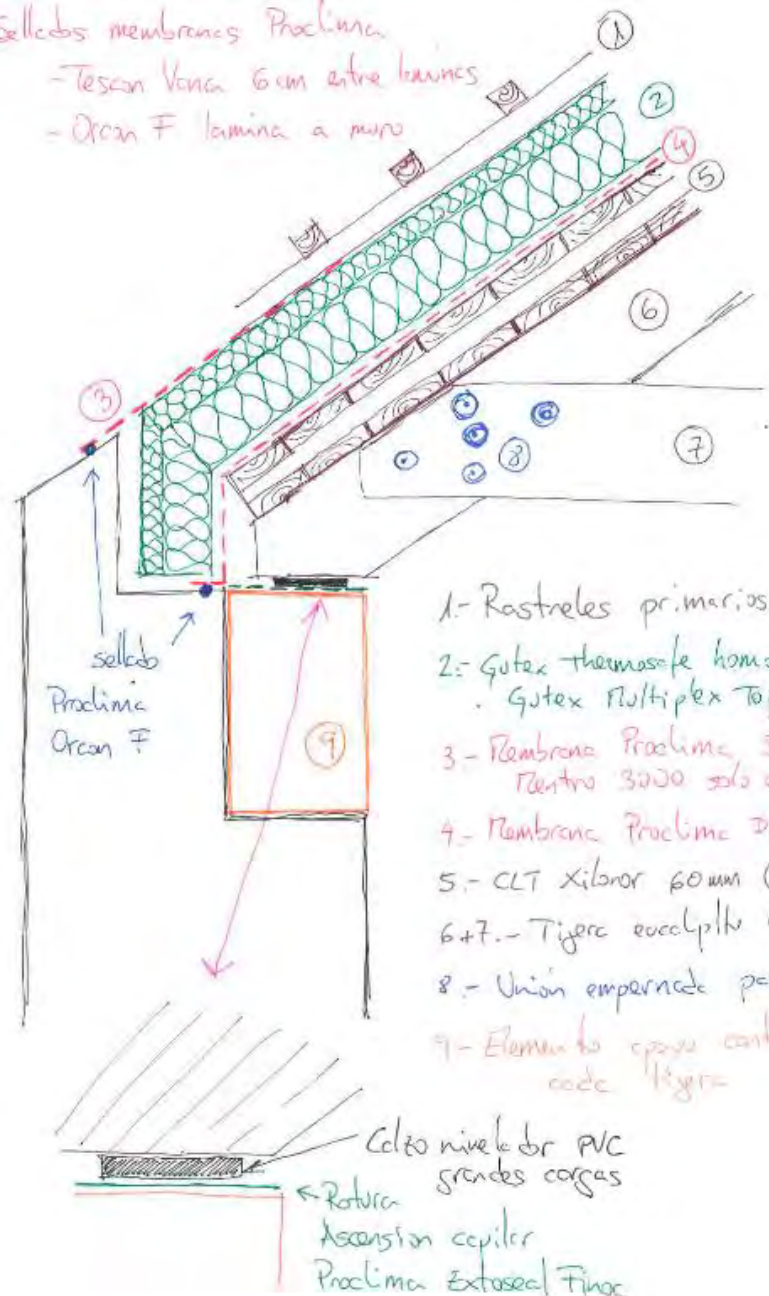 Sellados membranas Proclima
- Tescon Vana 6cm entre laminas
- Orcon F lamina a muro
1
2
4
5
3
6
7
8
sellado
Proclima
Orcon F
9
1.- Rastreles primarios
2.- Gutex thermosafe homo
. Gutex Multiplex Top
3 - Membrana Proclima
3000 solo
4.- Membrana Proclima D
5.- CLT Xilonor 60mm (
6+7.- Tijera eucalipto
8.- Unión empernada
9- Elemento apoyo
cada tijera
Calzo nivelador PVC
grandes cargas
Rotura
Ascension capilar
Proclima Extoseal Finoc